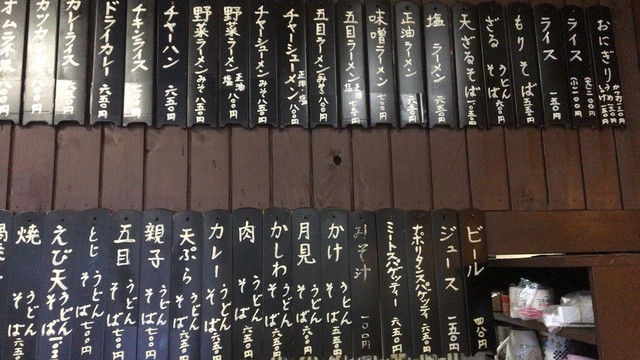 おにぎり
ライス
ライス 一五〇
もりそば 五五〇円
ざる そば うどん 六〇〇円
天ざるそば 一〇五〇円
塩ラーメン 六五〇円
正油ラーメン
味噌ラーメン 七〇〇円
五目ラーメン 正油 塩
五目ラーメン みそ 八〇〇円
チャーシューメン 正油 塩
チャーシューメン みそ 八五〇円
野菜ラーメン 正油 塩 八〇〇円
野菜ラーメン みそ 八五〇円
チャーハン 六五〇円
チキンライス
ドライカレー
カレーライス
カツカレー
オムライス
ビール
ジュース 一五〇円
ポリタンスパゲッティ 六五〇円
ミートスパゲッティー 六五〇円
みそ汁 一〇〇円
かけ うどん そば 五五〇円
月見 うどん そば 六〇〇円
かしわ うどん そば 六五〇円
肉 うどん そば 六五〇円
カレー うどん そば
天ぷら うどん そば
親子 うどん そば
五目 うどん そば
とじ うどん そば 七〇〇円
えび天 うどん そば
焼 うどん そば